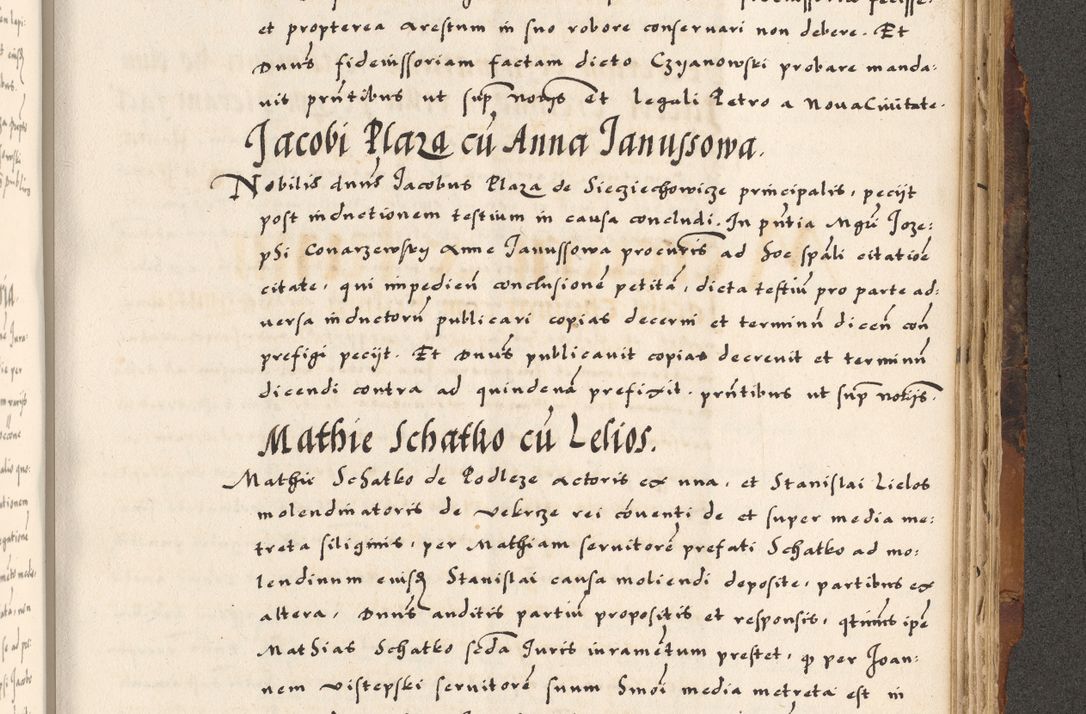 et propterea arestum in suo robore conservari non debere. Et
Dnus fideiussoriam factam dicto Czyanowski probare manda-
vit pntibus ut sup nobis et legali Petro a Nova Civitate.
Jacobi Plaza cu Anna Janussowa.
Nobilis dnus Jacobus Plaza de Siecziechowicze principalis, pecijt
post inductionem testium in causa concludi. In pntia Mgri Joze-
phi Conarzewsky Anne Janussowa procuris ad hoc spali citatioe
citate, qui impedien conclusione petita, dicta testiu pro parte ad-
versa inductoru publicari copias decerni et terminu dicen con
prefigi pecijt. Et Dnus publicavit copias decrevit et terminu
dicendi contra ad quindena prefixit. pntibus ut sup nobis.
Mathie Schatko cu Lelios.
Mathie Schatko de Podleze actoris ex una, et Stanislai Lielos
molendinatoris de Vekrze rei coventi de et super media me-
treta siliginis, per Mathiam servitore prefati Schatko ad mo-
lendinum eiusq Stanislai causa moliendi deposite, partibus ex
altera, Dnus auditis partiu propositis et responsis, qtinus ipe
Mathias Schatko scda Juris iurametum prestet, q per Joan-
nem Vistepski servitore suum Smoi media metreta est in